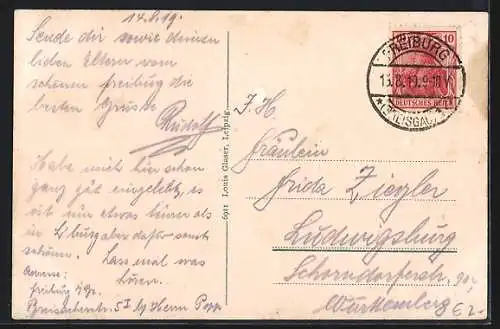 14.8.19.
Sende dir sowie deinen
lieben Eltern vom
schönen freiburg die
besten Grüsse
Rudolf
Habe mich hier schon
ganz gut eingelebt, es
ist nur etwas teurer als
in L'burg aber dafür sonst
schöner. Lass mal was
hören.
Adresse:
freiburg i/Br.
5 I
6921 Louis Glaser, Leipzig.
FREIBURG
13.8.19.9-10V
* (BREISGAU) *
10
DEUTSCHES REICH
Fräulein
Frida Ziegler
Ludwigsburg
Schorndorferstr. 90
Württemberg
€ 2.-